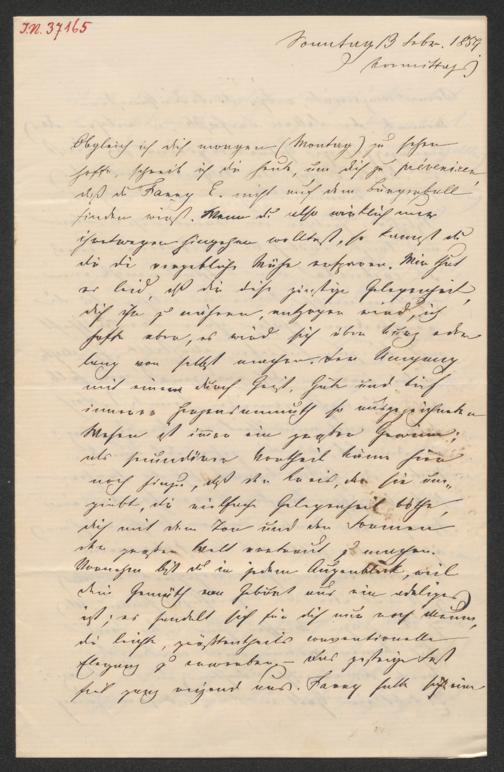 I.N. 37165
Sonntag 13 Febr. 1859
Vormittags
Obgleich ich dich morgen (Montag) zu sehen
hoffe, schreib ich dir heute, um dich zu préveniren,
daß du Fanny E. nicht auf dem Bürgerball
finden wirst. Wenn du also wirklich nur
ihretwegen hingehen wolltest, so kannst du
dir die vergebliche Mühe ersparen. Mir thut
es leid, daß dir diese günstige Gelegenheit,
dich ihr zu nähern, entzogen wird, ich
hoffe aber, es wird sich über kurz oder
lang von selbst machen. Der Umgang
mit einem durch Geist, Güte und tief
innerer Herzensanmuth so ausgezeichneten
Wesen ist immer ein großer Gewinn;
als secundärer Vortheil käme hier
noch hinzu, daß der Kreis, der sie um-
giebt, dir vielfach Gelegenheit böthe,
dich mit dem Ton und den Formen
der großen Welt vertraut zu machen.
Vornehm bist du in jedem Augenblick, weil
dein Gemüth von Geburt aus ein adeliges
ist; es handelt sich für dich nur noch darum,
die leichte, größtentheils conventionelle
Eleganz zu erwerben. – Das gestrige Fest
fiel ganz reizend aus. Fanny hatte sich eine